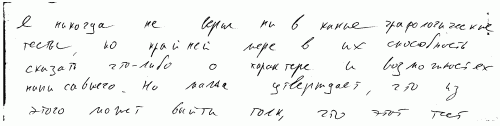 Я никогда не верил ни в какие графологические
тесты, по крайней мере в их способность
сказать что-либо о характере и возможностях
писавшего. Но мама утверждает, что из
этого может выйти толк, что этот тест